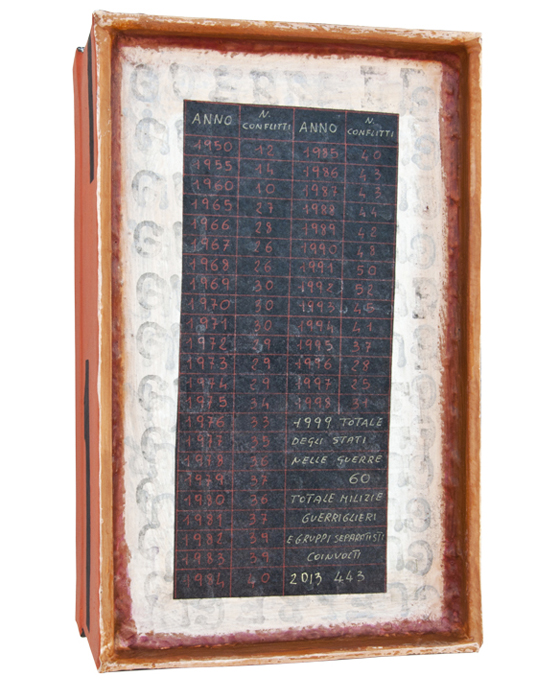 ANNO N. CONFLITTI ANNO N. CONFLITTI
1950 12 1985 40
1955 14 1986 43
1960 10 1987 43
1965 27 1988 44
1966 28 1989 42
1967 26 1990 48
1968 26 1991 50
1969 30 1992 52
1970 30 1993 45
1971 30 1994 41
1972 29 1995 37
1973 29 1996 28
1974 29 1997 25
1975 34 1998 31
1976 33 1999 TOTALE
1977 35 DEGLI STATI
1978 36 NELLE GUERRE
1979 37 60
1980 36 TOTALE MILIZIE
1981 37 GUERRIGLIERI
1982 39 E GRUPPI SEPARATISTI
1983 39 COINVOLTI
1984 40 2013 443